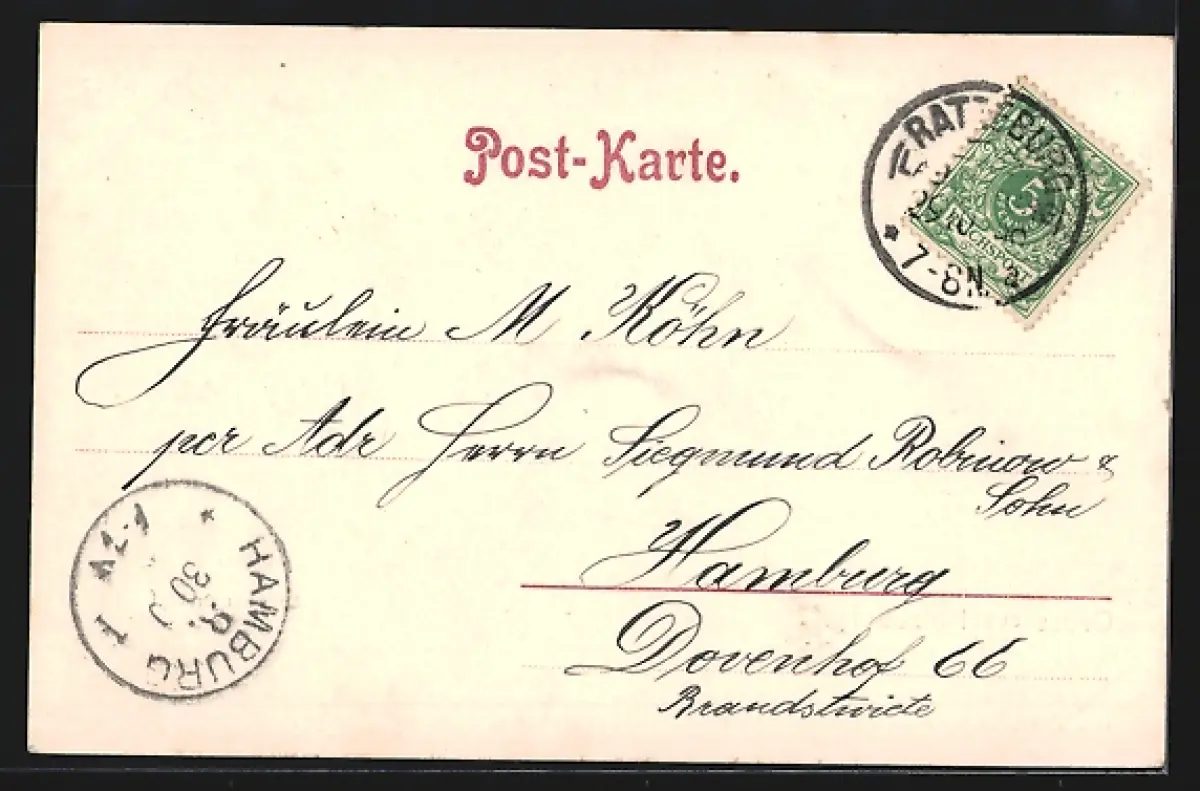 Post-Karte.
RATZEBURG
29
7-8N. a
5
REICHSPOST
Fräulein M Köhn
per Adr Herrn Siegmund Robinow &
Sohn
Hamburg
Dovenhof 66
Brandstwiete
* HAMBURG 1
30